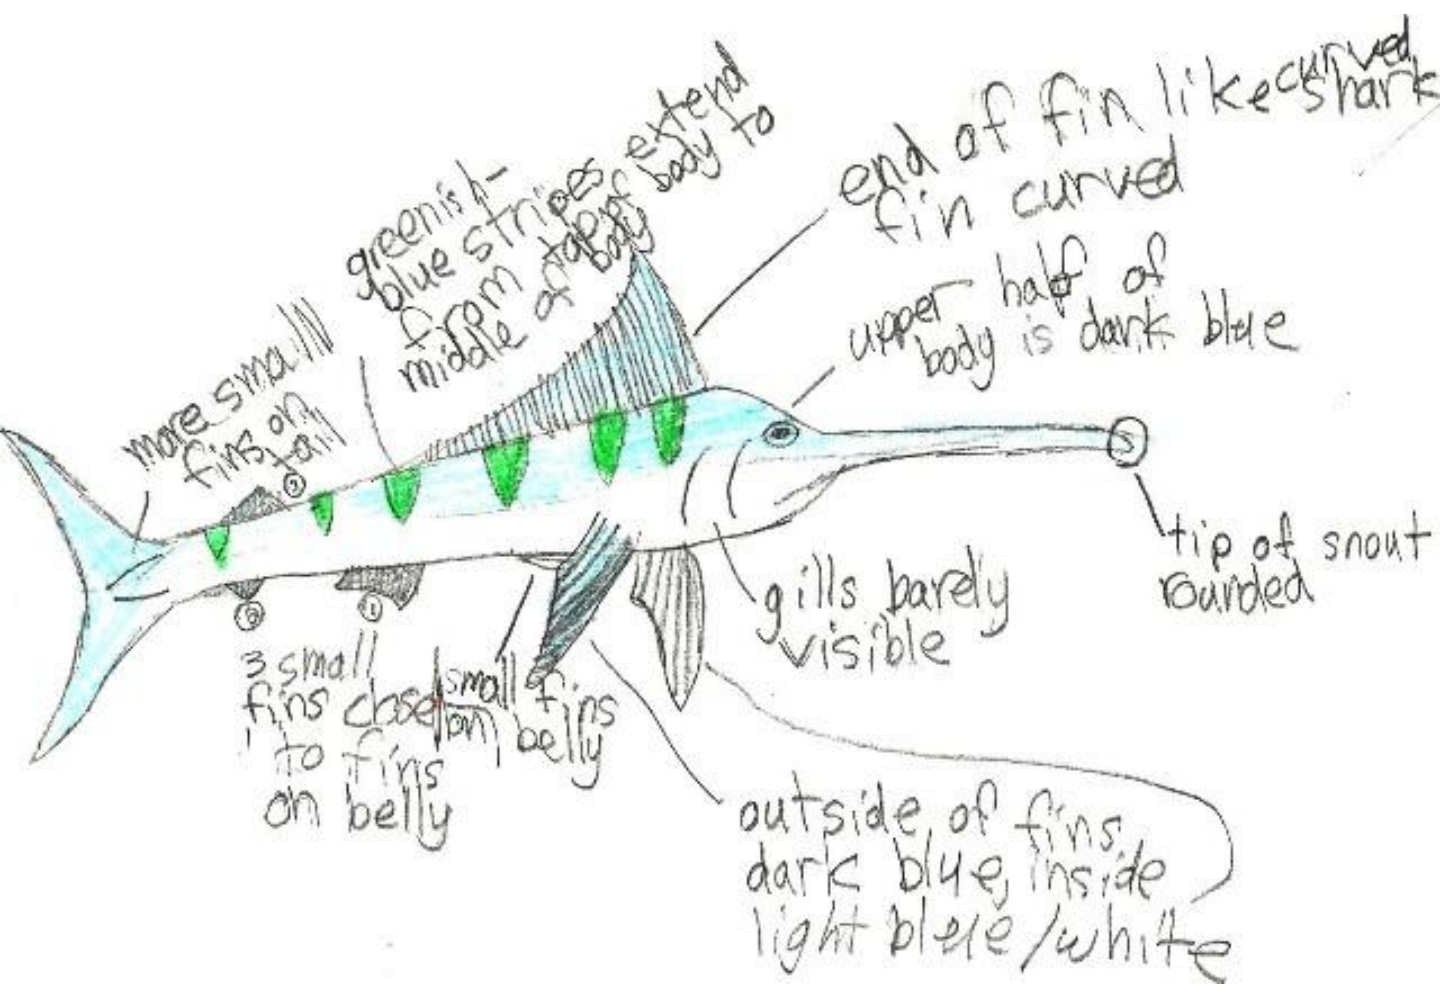 greenish-
blue stripes extend
from top of body to
middle of body
end of fin like curved shark
fin curved
upper half of
body is dark blue
more small
fins on
tail
2
tip of snout
rounded
gills barely
visible
3
1
3 small
fins close
to fins
on belly
small fins
on belly
outside of fins
dark blue, inside
light blue/white